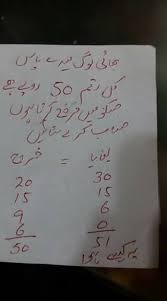 بھائی لوگ میرے پاس
کل رقم 50 روپے ہے
جسکو میں خرچ کرتا ہوں
حساب کر کے بتائیں
بقایا = خرچ
30 20
15 15
6 9
0 6
51 50
یہ کیسے ہوا؟